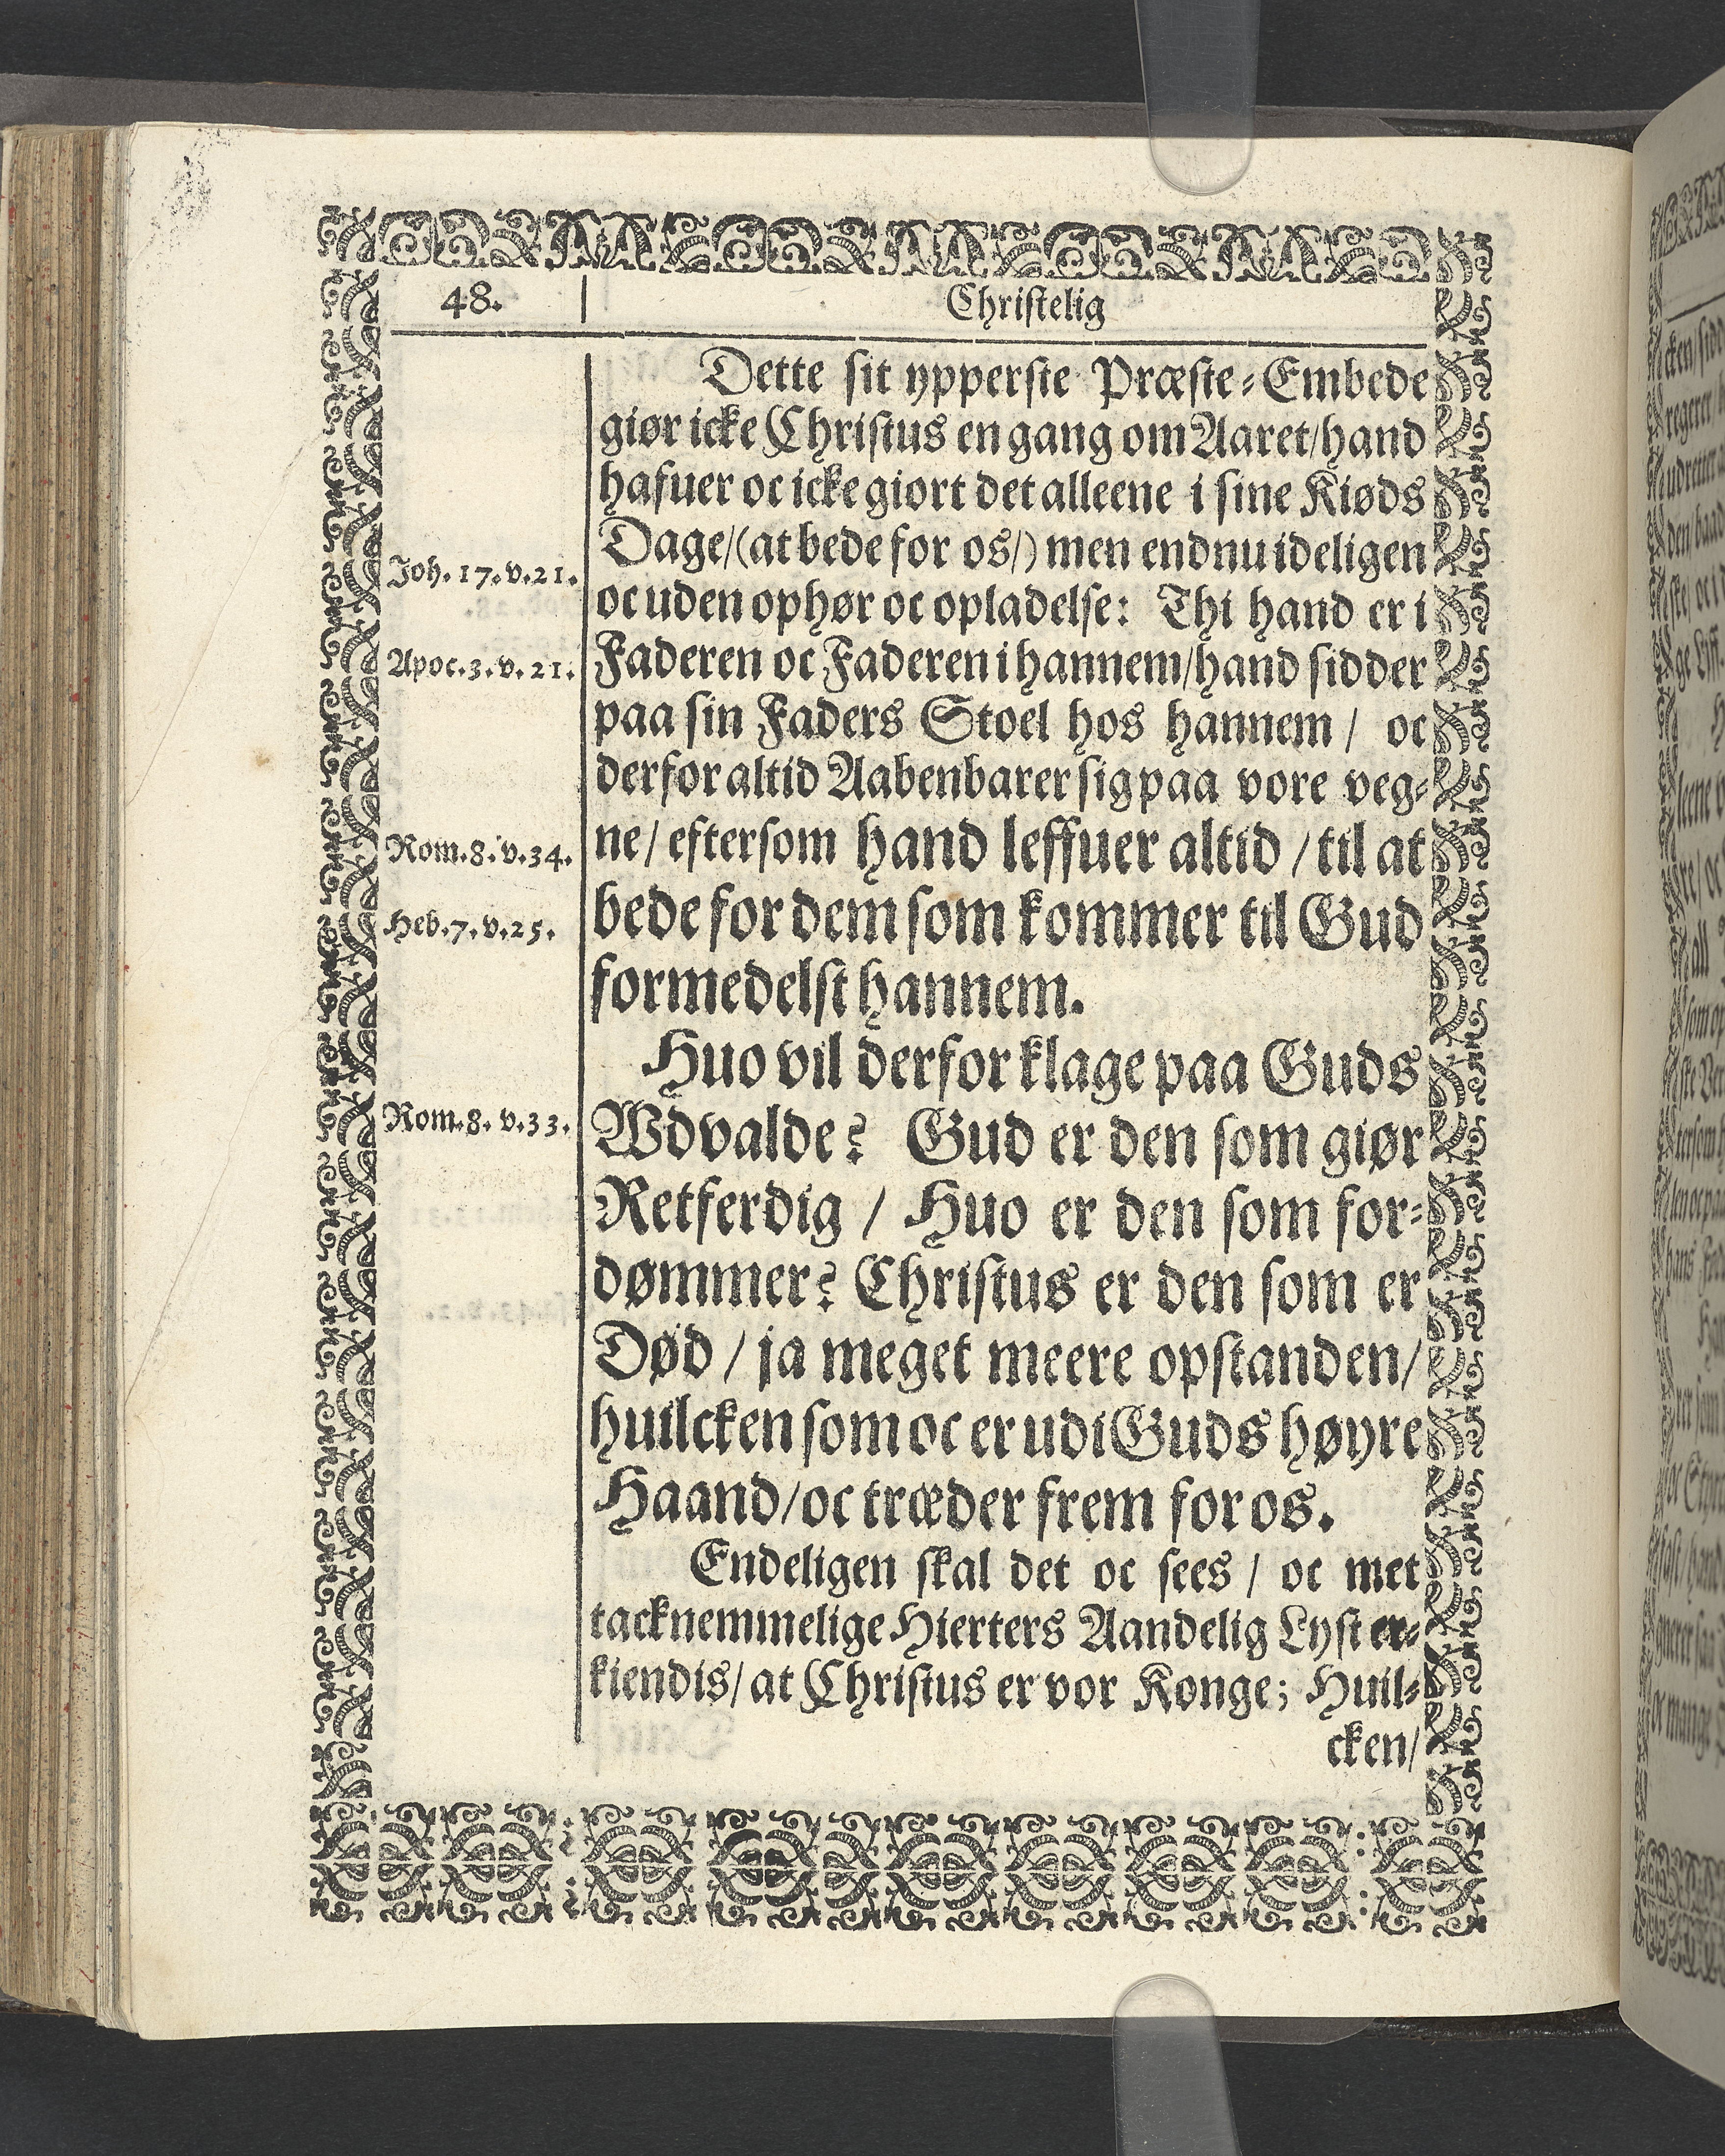 48.
Christelig
Dette sit ypperste Præste-Embede
giør icke Christus en gang om Aaret/hand
hafuer oc icke giort det alleene i sine Kiøds
Dage/(at bede for os/) men endnu ideligen
Joh. 17. v. 21.
oc uden ophør oc opladelse: Thi hand er i
Apoc. 3. v. 21.
Faderen oc Faderen i hannem/hand sidder
paa sin Faders Stoel hos hannem / oc
derfor altid Aabenbarer sig paa vore veg-
Rom. 8. v. 34.
ne/ eftersom hand leffuer altid / til at
Heb. 7. v. 25.
bede for dem som kommer til Gud
formedelst hannem.
Huo vil derfor klage paa Guds
Rom. 8. v. 33.
Wdvalde? Gud er den som giør
Retferdig / Huo er den som for-
dømmer? Christus er den som er
Død / ja meget meere opstanden/
huilcken som oc er udi Guds høyre
Haand/oc træder frem for os.
Endeligen skal det oc sees / oc met
tacknemmelige Hierters Aandelig Lyst er-
kiendis/ at Christus er vor Konge; Huil-
cken/